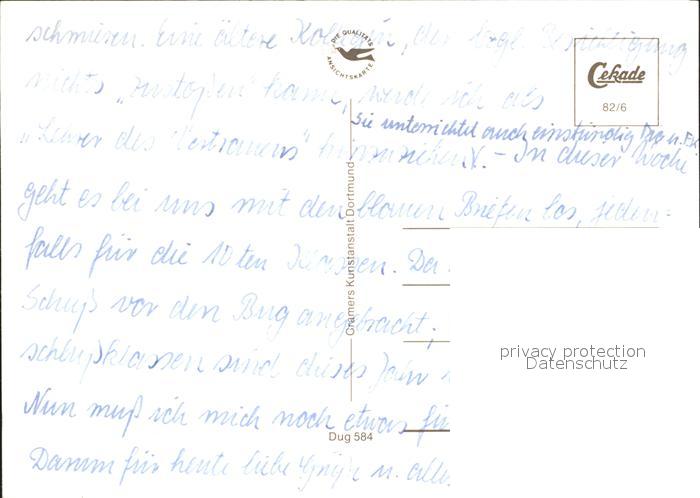 schmieren. Eine ältere Kollegin, der bzgl. Berichtigung
DIE QUALITÄTS ANSICHTSKARTE
Cekade
82/6
nichts „zustoßen“ kann, werde ich als
Sie unterrichtet auch einstündig
„Lehrer des Vertrauens“ hinzuziehen. – In dieser Woche
geht es bei uns mit den blauen Briefen los, jeden-
falls für die 10ten Klassen. Der
Schuß vor den Bug angebracht;
schlußklassen sind dieses Jahr
Nun muß ich mich noch etwas für
Dann für heute liebe Grüße u. alles
Cramers Kunstanstalt Dortmund
Dug 584
privacy protection
Datenschutz